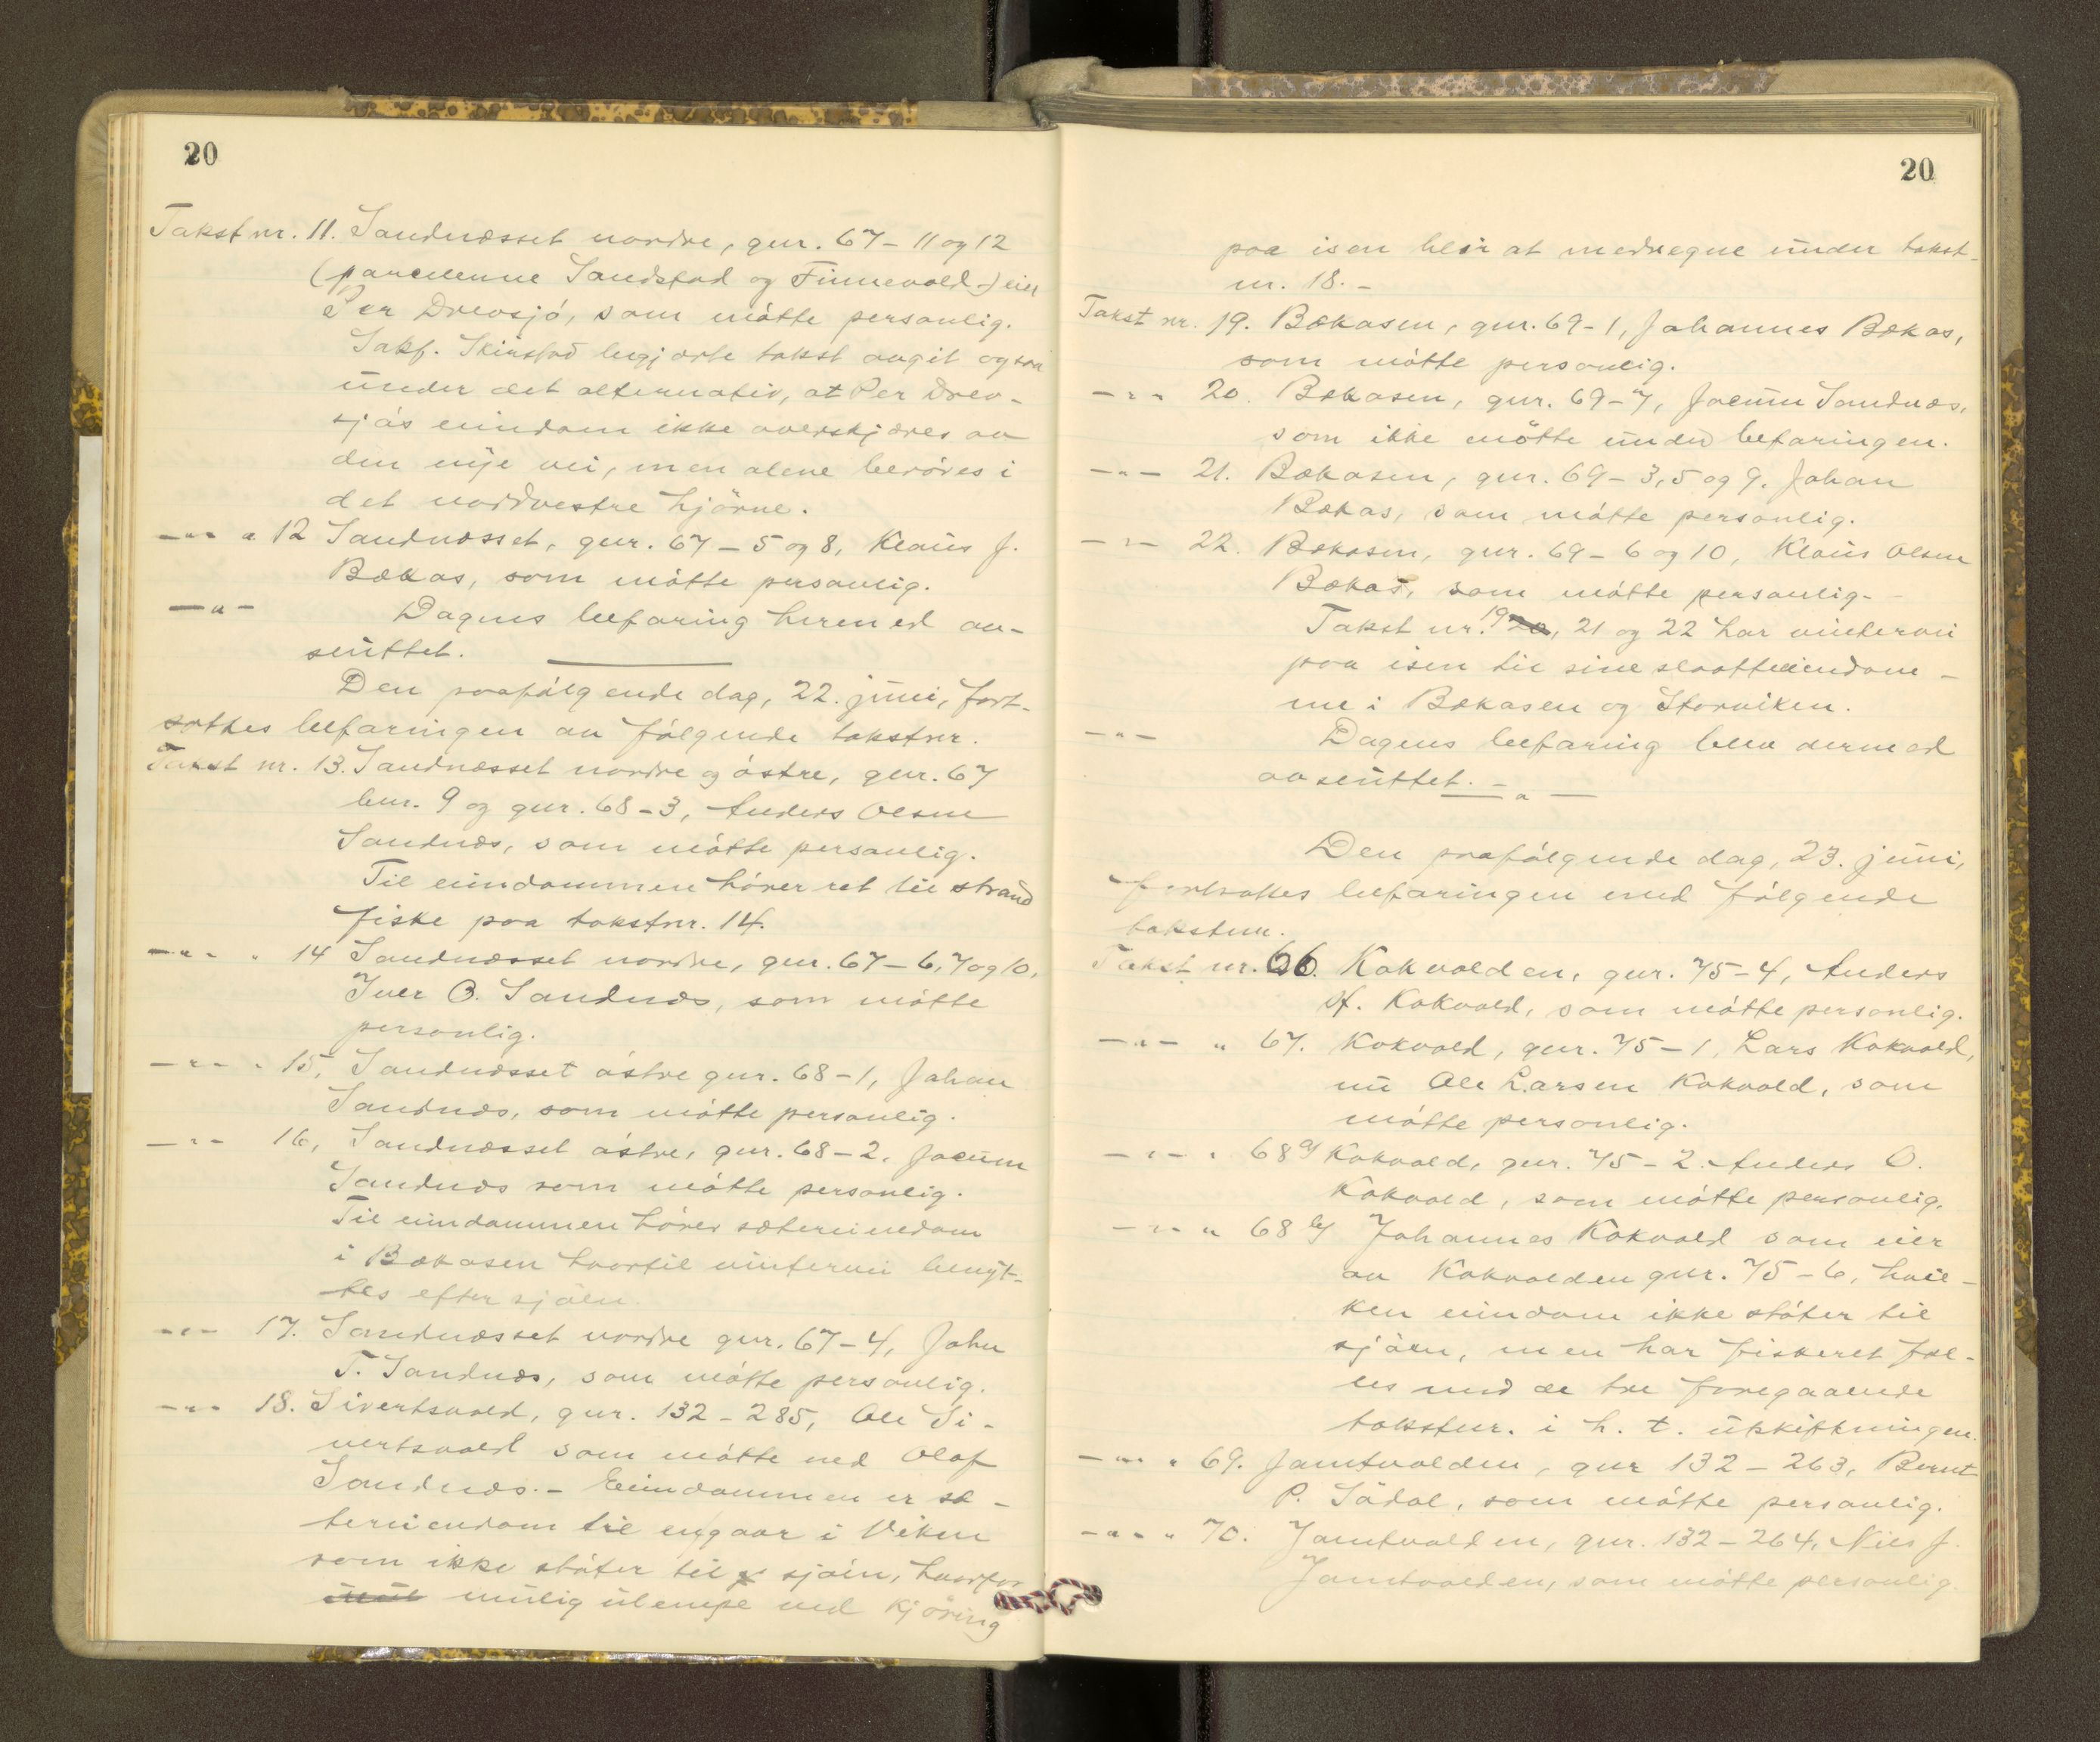 20
Takst nr. 11. Sandnæsset nordre, gnr. 67 - 11 og 12
(parcellerne Sandstad og Finnevold) eier
Per Drevsjó, som mótte personlig.
Sakf. Skirstad begjærte takst avgit ogsaa
under det alternativ, at Per Drev-
sjós eiendom ikke overskjæres av
den nye vei, men alene berøres i
det nordvestre hjörne.
— „ — „ 12 Sandnæsset, gnr. 67 - 5 og 8, Klaus J.
Bækas, som mótte personlig.
— „ — Dagens befaring hermed av-
sluttet.
Den paafólgende dag, 22. juni, fort-
sattes befaringen av fólgende takstnr.
Takst nr. 13. Sandnæsset nordre og óstre, gnr. 67
bnr. 9 og gnr. 68 - 3, Anders Olsen
Sandnæs, som mótte personlig.
Til eiendommen hórer ret til strand
fiske paa takstnr. 14.
— „ — „ 14 Sandnæsset nordre, gnr. 67 - 6, 7 og 10,
Iver O. Sandnæs, som mótte
personlig.
— „ — „ 15, Sandnæsset óstre gnr. 68 - 1, Johan
Sandnæs, som mótte personlig.
— „ — 16, Sandnæsset óstre, gnr. 68 - 2. Jocum
Sandnæs som mótte personlig.
Til eiendommen hórer sætereiendom
i Bækåsen hvortil vintervei benyt-
tes efter sjóen.
— „ — 17. Sandnæsset nordre gnr. 67 - 4, John
T. Sandnæs, som mótte personlig.
— „ — 18. Sivertsvold, gnr. 132 - 285, Ole Si-
vertsvold som mótte ved Olaf
Sandnæs. - Eiendommen er sæ-
tereiendom til en gaar i Viken
som ikke stóter til sjóen, hvorfor
mulig ulempe ved kjöring
20
paa isen blir at medregne under takst-
nr. 18. -
Takst nr. 19. Bækasen, gnr. 69 - 1, Johannes Bækas,
som mótte personlig.
— „ — 20. Bækasen, gnr. 69 - 7, Jocum Sandnæs,
som ikke mötte under befaringen.
— „ — 21. Bækasen, gnr. 69 - 3, 5 og 9. Johan
Bækas, som mótte personlig.
— „ — 22. Bækasen, gnr. 69 - 6 og 10, Klaus Olsen
Bækas, som mótte personlig. -
Takst nr. 19, 21 og 22 har vintervei
paa isen til sine slaatteeiendom-
me i Bækasen og Storviken.
— „ — Dagens befaring blev dermed
avsluttet. -
— „ —
Den paafólgende dag, 23. juni,
fortsattes befaringen med fólgende
takstnr.
Takst nr. 66. Kokvolden, gnr. 75 - 4, Anders
H. Kokvold, som mótte personlig.
— „ — „ 67. Kokvold, gnr. 75 - 1, Lars Kokvold,
nu Ole Larsen Kokvold, som
mótte personlig.
— „ — „ 68 a/ Kokvold, gnr. 75 - 2. Anders O.
Kokvold, som mótte personlig.
— „ — „ 68 b/ Johannes Kokvold som eier
av Kokvolden gnr. 75 - 6, hvil-
ken eiendom ikke stóter til
sjóen, men har fiskeret fæl-
les med de tre foregaaende
takstnr. i h. t. utskiftningen.
— „ — „ 69. Jamtvolden, gnr 132 - 263, Bernt
P. Södal, som mótte personlig.
— „ — „ 70. Jamtvolden, gnr. 132 - 264, Nils J.
Jamtvolden, som mótte personlig.